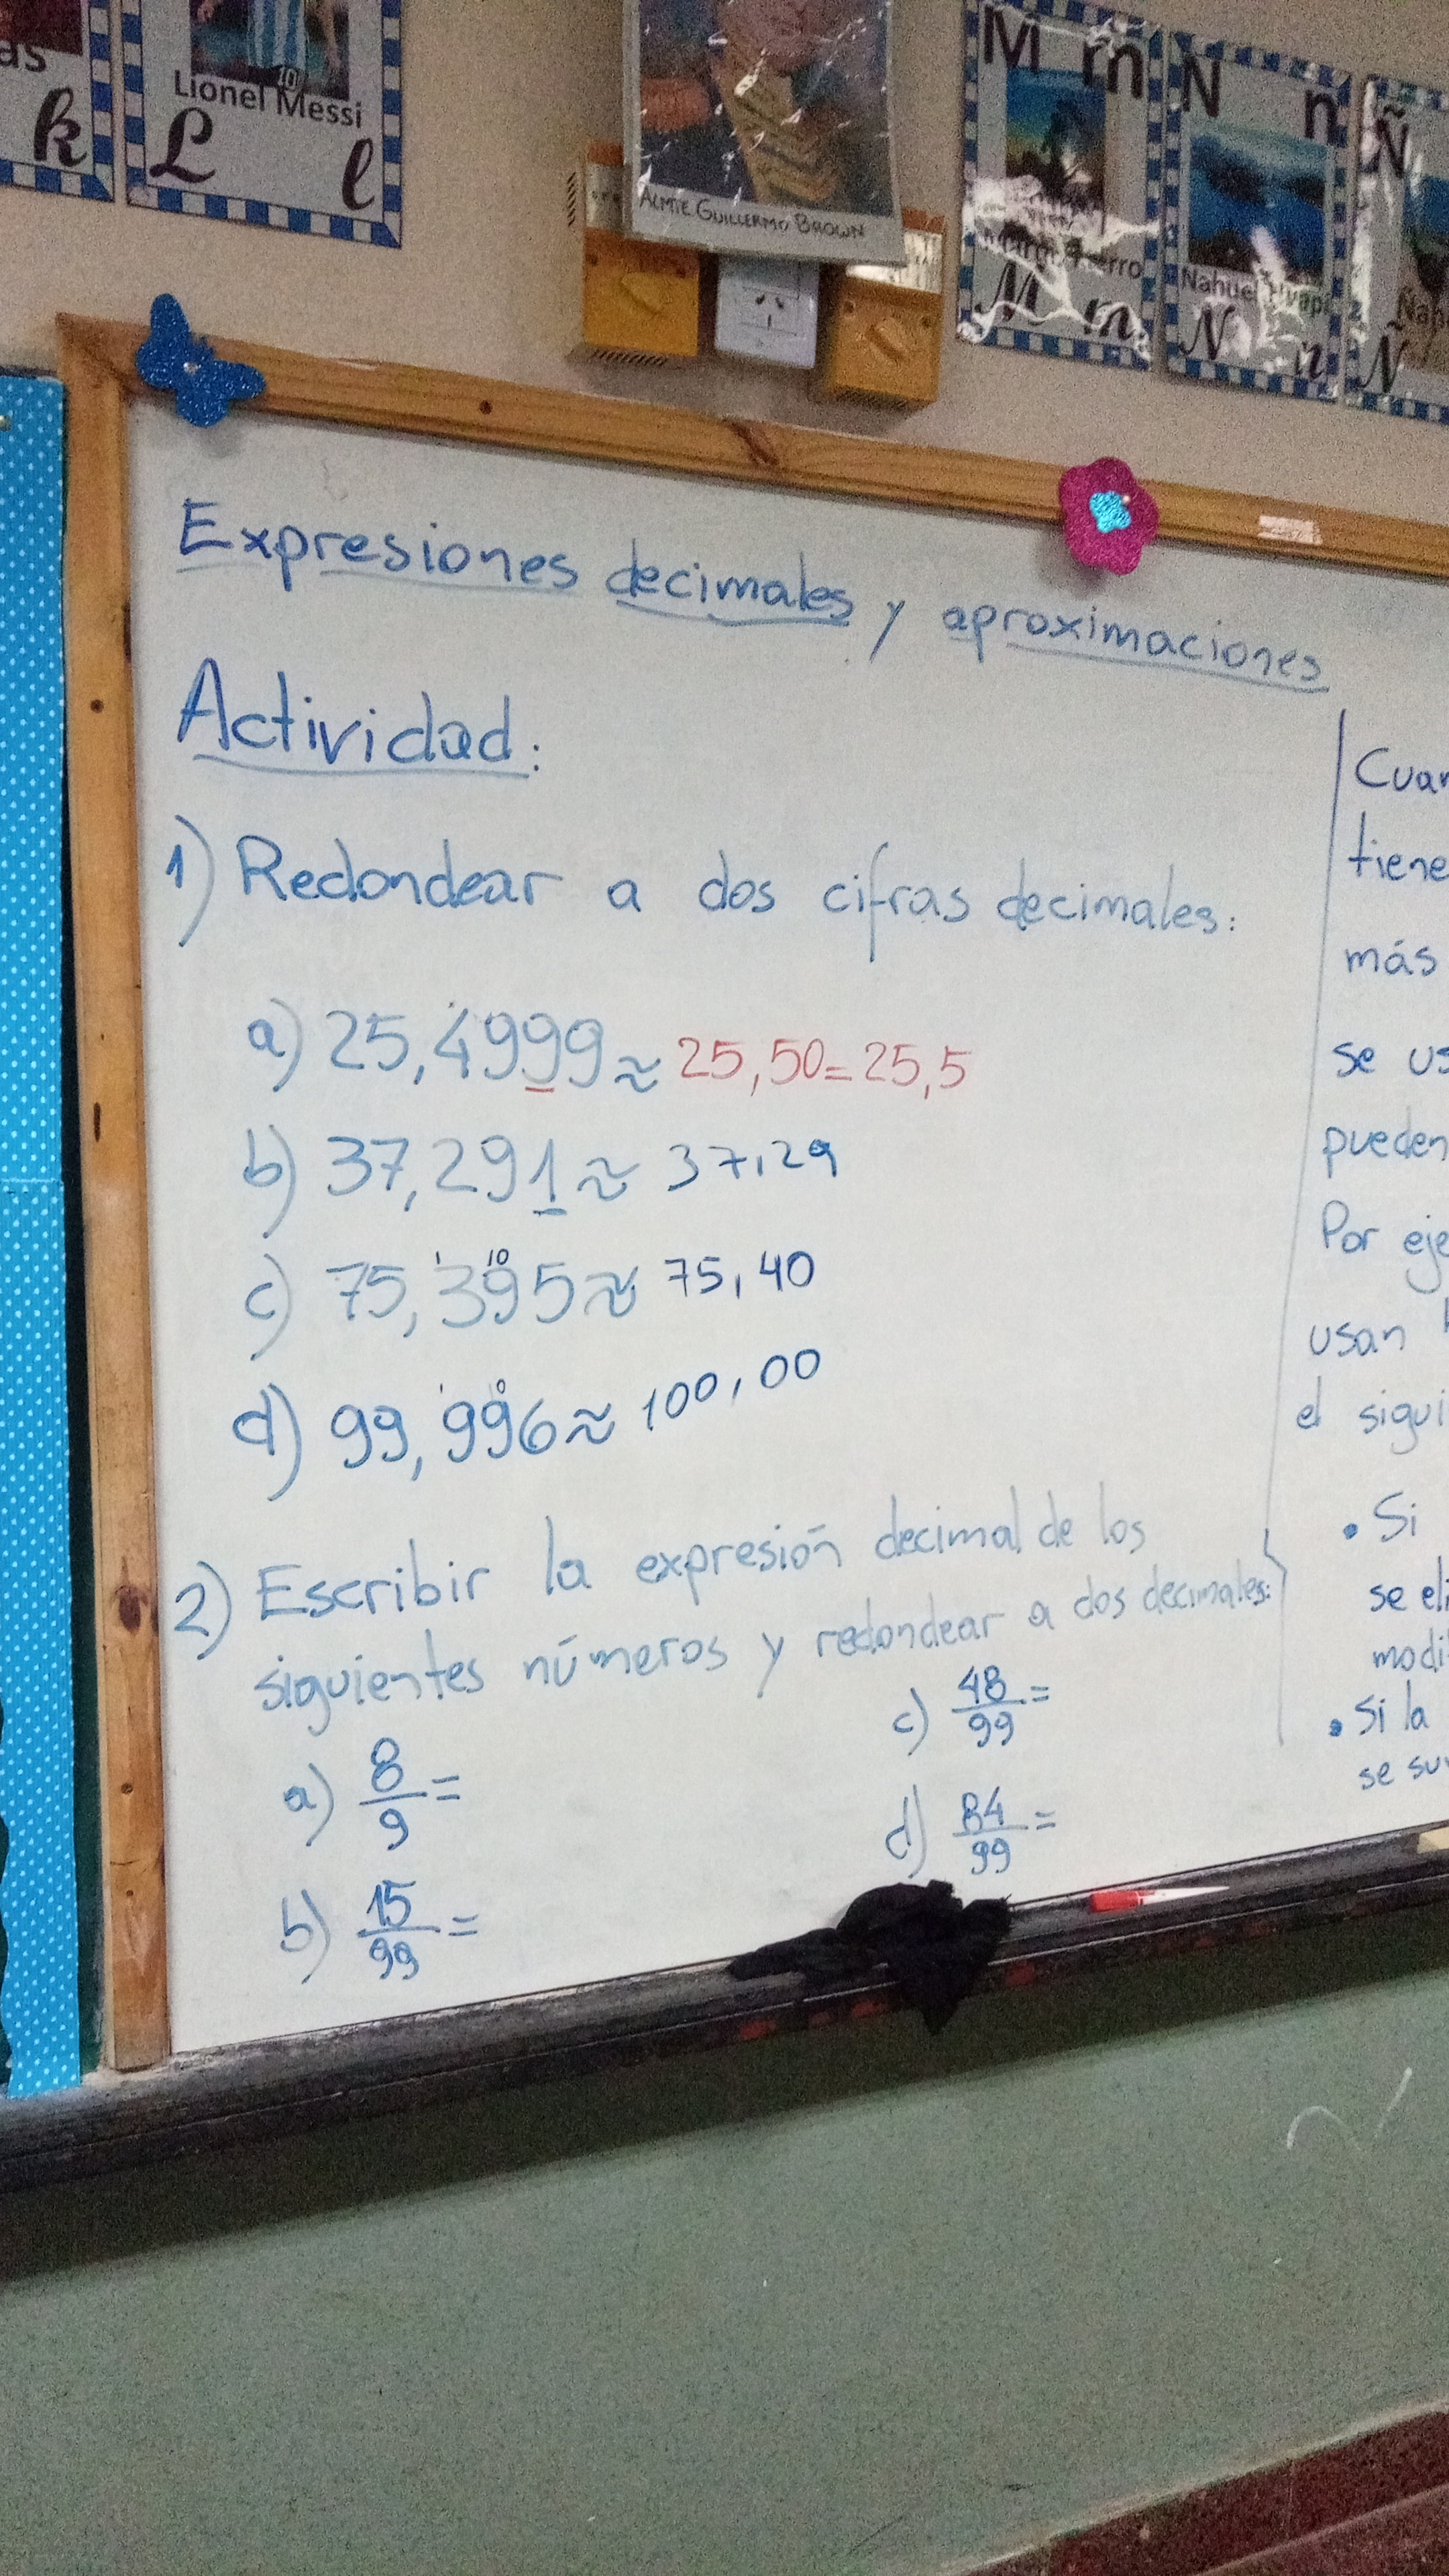 as
k
Lionel Messi
L l
ALMTE GUILLERMO BROWN
M m
M m
N n
Nahuel
N n
Ñ
Ñ
Expresiones decimales y aproximaciones
Actividad:
1) Redondear a dos cifras decimales:
a) 25,4999 ≈ 25,50 = 25,5
b) 37,291 ≈ 37,29
c) 75,395 ≈ 75,40
d) 99,996 ≈ 100,00
2) Escribir la expresión decimal de los
siguientes números y redondear a dos decimales:
a) 8/9 =
b) 15/99 =
c) 48/99 =
d) 84/99 =
Cuan
tiene
más
se us
pueden
Por eje
usan
el sigui
• Si
se eli
modi
• Si la
se su